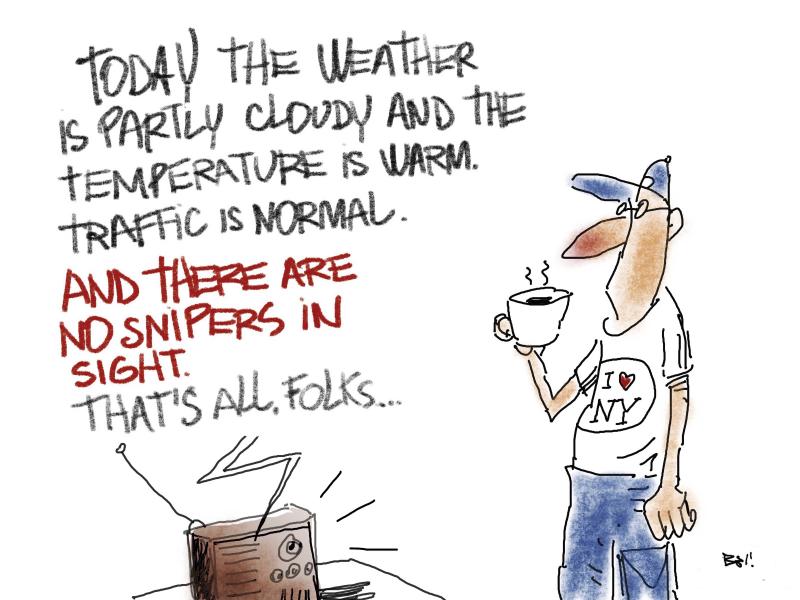 TODAY THE WEATHER
IS PARTLY CLOUDY AND THE
TEMPERATURE IS WARM.
TRAFFIC IS NORMAL.
AND THERE ARE
NO SNIPERS IN
SIGHT.
THAT'S ALL, FOLKS...
I ♥
NY